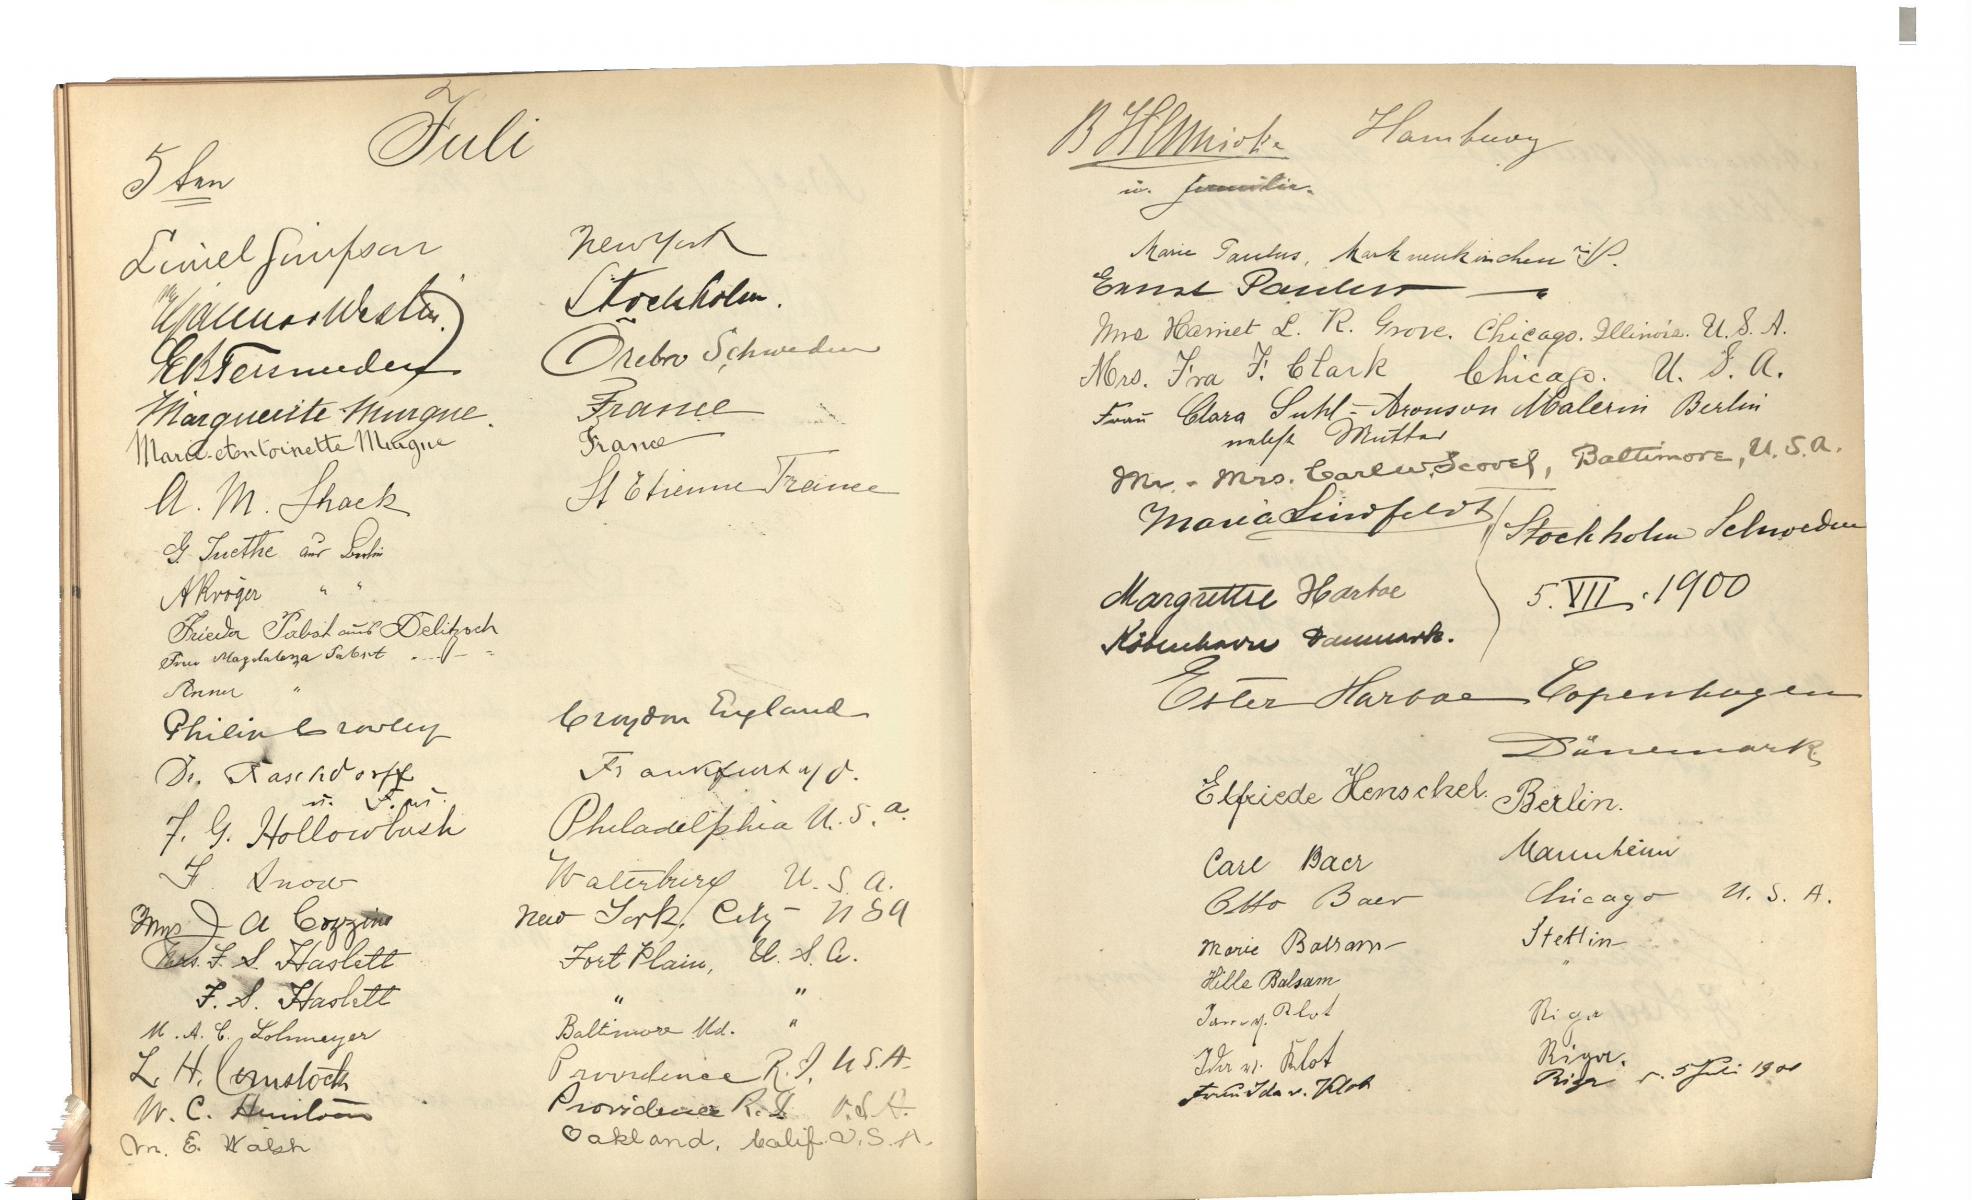 Juli
5ten
Simpson New York
Hjalmar Westin Stockholm.
Örebro Schweden
Marguerite Murgue. France
Marie-Antoinette Murgue France
A. M. Shack St Etienne France
G. aus Berlin
A Kröger " "
Pabst aus Delitzsch
Frau Magdalena Pabst
Anna "
Philip Crowley Croydon England
Dr. Raschdorff Frankfurt a/O.
u. Frau.
F. G. Hollowbush Philadelphia U. S. A.
F. Snow Waterbury U. S. A.
Mrs J A Cozzins New York, City - U S A
Mrs. F. S. Haslett Fort Plain, U. S. A.
F. S. Haslett " "
M. A. C. Lohmeyer Baltimore Md. "
L. H. Comstock Providence R. I. U S A.
W. C. Providence R. I. U. S. A.
Wm. E. Walsh Oakland, Calif. U. S. A.
B Hamburg
u. Familie.
Marie Paulus, Markneukirchen i/S.
Ernst Paulus — "
Mrs Harriet L. R. Grove. Chicago. Illinois. U. S. A.
Mrs. Ira F. Clark Chicago. U. S. A.
Frau Clara Suhl-Aronson Malerin Berlin
nebst Mutter
Mr. - Mrs. Carl W. Scovel, Baltimore, U. S. A.
Maria Lindfeldt Stockholm Schweden
Margrethe Harboe 5. VII. 1900
Köbenhavn Danmark.
Ester Harboe Copenhagen
Dänemark
Elfriede Henschel. Berlin.
Carl Baer Mannheim
Otto Baer Chicago U. S. A.
Marie Balsam Stettin
Hille Balsam "
v. Klot Riga
Ida v. Klot Riga.
Frau Ida v. Klot Riga d. 5 Juli 1900